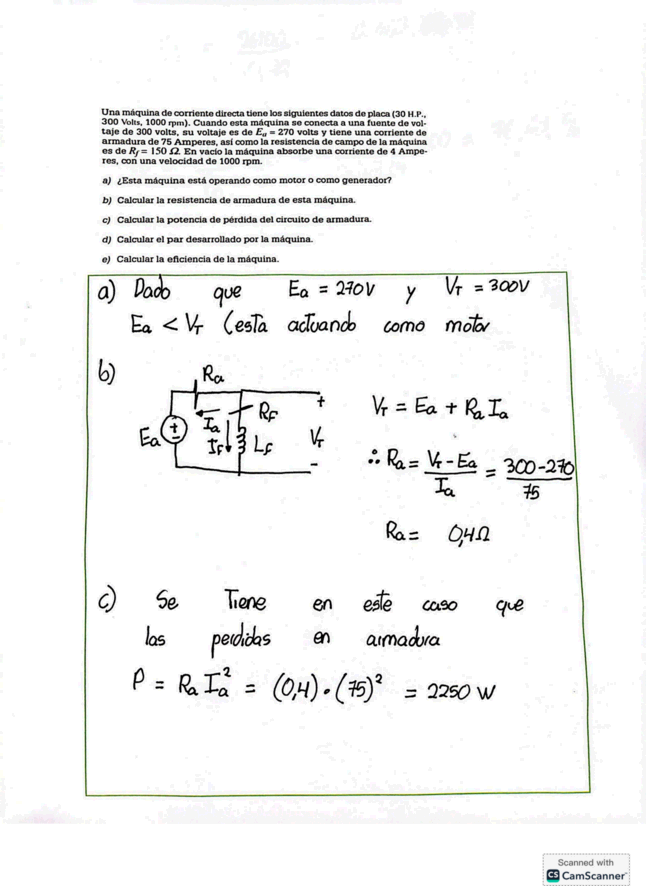 Una máquina de corriente directa tiene los siguientes datos de placa (30 H.P.,
300 Volts, 1000 rpm). Cuando esta máquina se conecta a una fuente de vol-
taje de 300 volts, su voltaje es de Ea = 270 volts y tiene una corriente de
armadura de 75 Amperes, así como la resistencia de campo de la máquina
es de Rf = 150 Ω. En vacío la máquina absorbe una corriente de 4 Ampe-
res, con una velocidad de 1000 rpm.
a) ¿Esta máquina está operando como motor o como generador?
b) Calcular la resistencia de armadura de esta máquina.
c) Calcular la potencia de pérdida del circuito de armadura.
d) Calcular el par desarrollado por la máquina.
e) Calcular la eficiencia de la máquina.
a) Dado que Ea = 270V y VT = 300V
Ea < VT (esta actuando como motor
b)
Ra
Ea + - Ia RF
IF LF
+ VT -
VT = Ea + Ra Ia
∴ Ra = VT - Ea / Ia = 300-270 / 75
Ra = 0,4Ω
c) Se Tiene en este caso que
las perdidas en armadura
P = Ra Ia² = (0,4) · (75)² = 2250 W
Scanned with
CS CamScanner